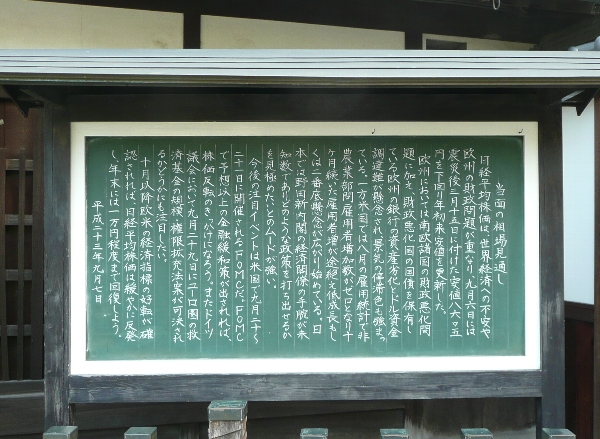 当面の相場見通し
日経平均株価は、世界経済への不安や
欧州の財政問題が重なり、九月六日には
震災後三月十五日に付けた安値八六〇五
円を下回り年初来安値を更新した。
欧州においては南欧諸国の財政悪化問
題に加え、財政悪化国の国債を保有し
ている欧州の銀行の資産劣化やドル資金
調達難が懸念され景気の停滞色も強まっ
ている。一方米国では八月の雇用統計で非
農業部門雇用者増加数がゼロとなり十
ヶ月続いた雇用者増が途絶え低成長もし
くは二番底懸念が広がり始めている。日
本では野田新内閣の経済関係の手腕が未
知数でありどのような政策を打ち出せるか
を見極めたいとのムードが強い。
今後の注目イベントは米国で九月二十〜
二十一日に開催されるFOMCだ。FOMC
で予想以上の金融緩和策が出れば、
株価反転のきっかけになろう。またドイツ
議会において九月二十九日にユーロ圏の救
済基金の規模・権限拡充法案が可決され
るかどうかにも注目したい。
十月以降欧米の経済指標の好転が確
認されれば、日経平均株価は緩やかに反発
し、年末には一万円程度まで回復しよう。
平成二十三年九月七日